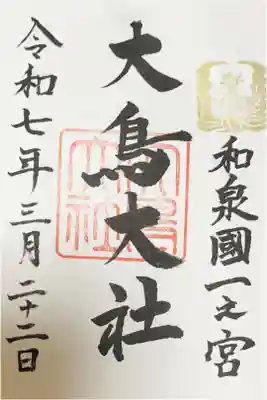 和泉國一之宮
大鳥大社
令和七年三月二十二日